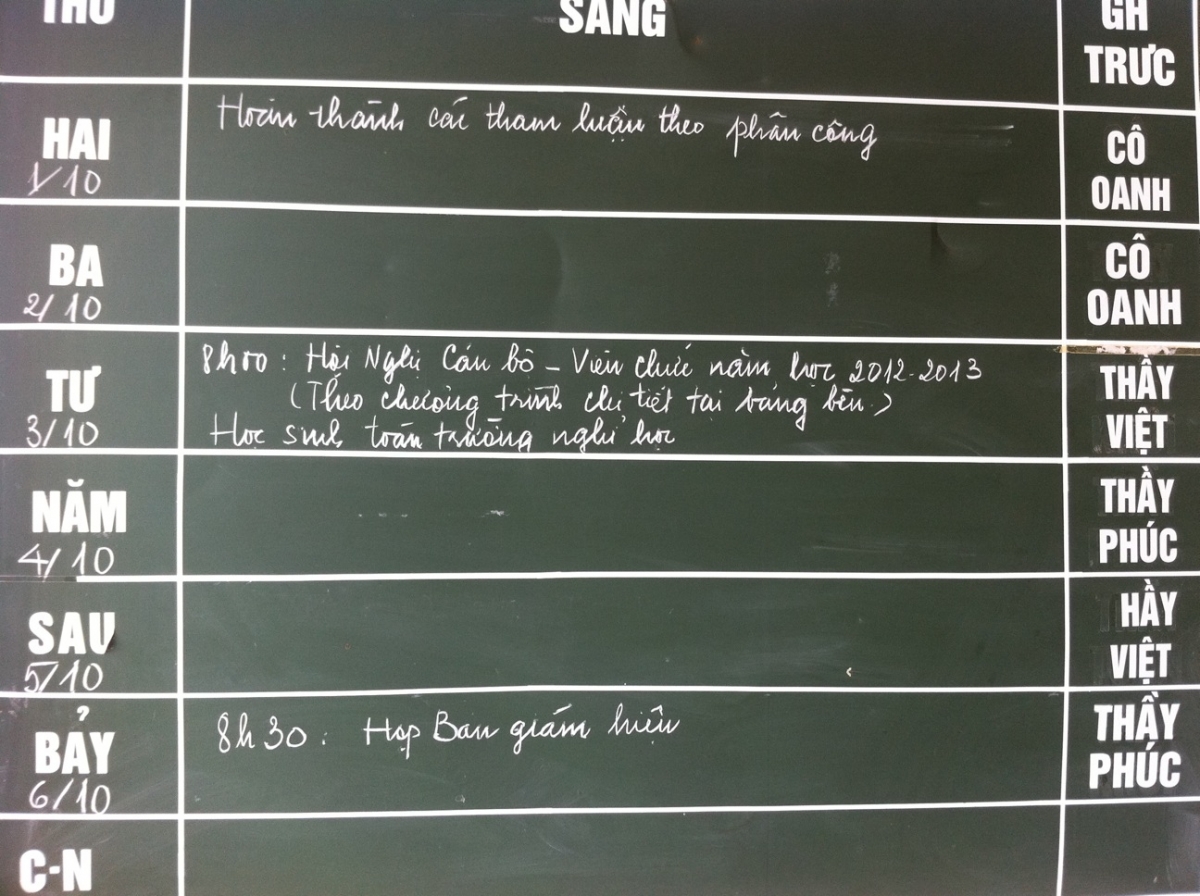 THỨ SÁNG GH
TRỰC
HAI Hoàn thành các tham luận theo phân công CÔ
1/10 OANH
BA CÔ
2/10 OANH
8h00: Hội Nghị Cán bộ - Viên chức năm học 2012-2013 THẦY
TƯ (Theo chương trình chi tiết tại bảng bên)
3/10 Học sinh toàn trường nghỉ học VIỆT
NĂM THẦY
4/10 PHÚC
SAU HẦY
5/10 VIỆT
BẢY 8h30: Họp Ban giám hiệu THẦY
6/10 PHÚC
C-N